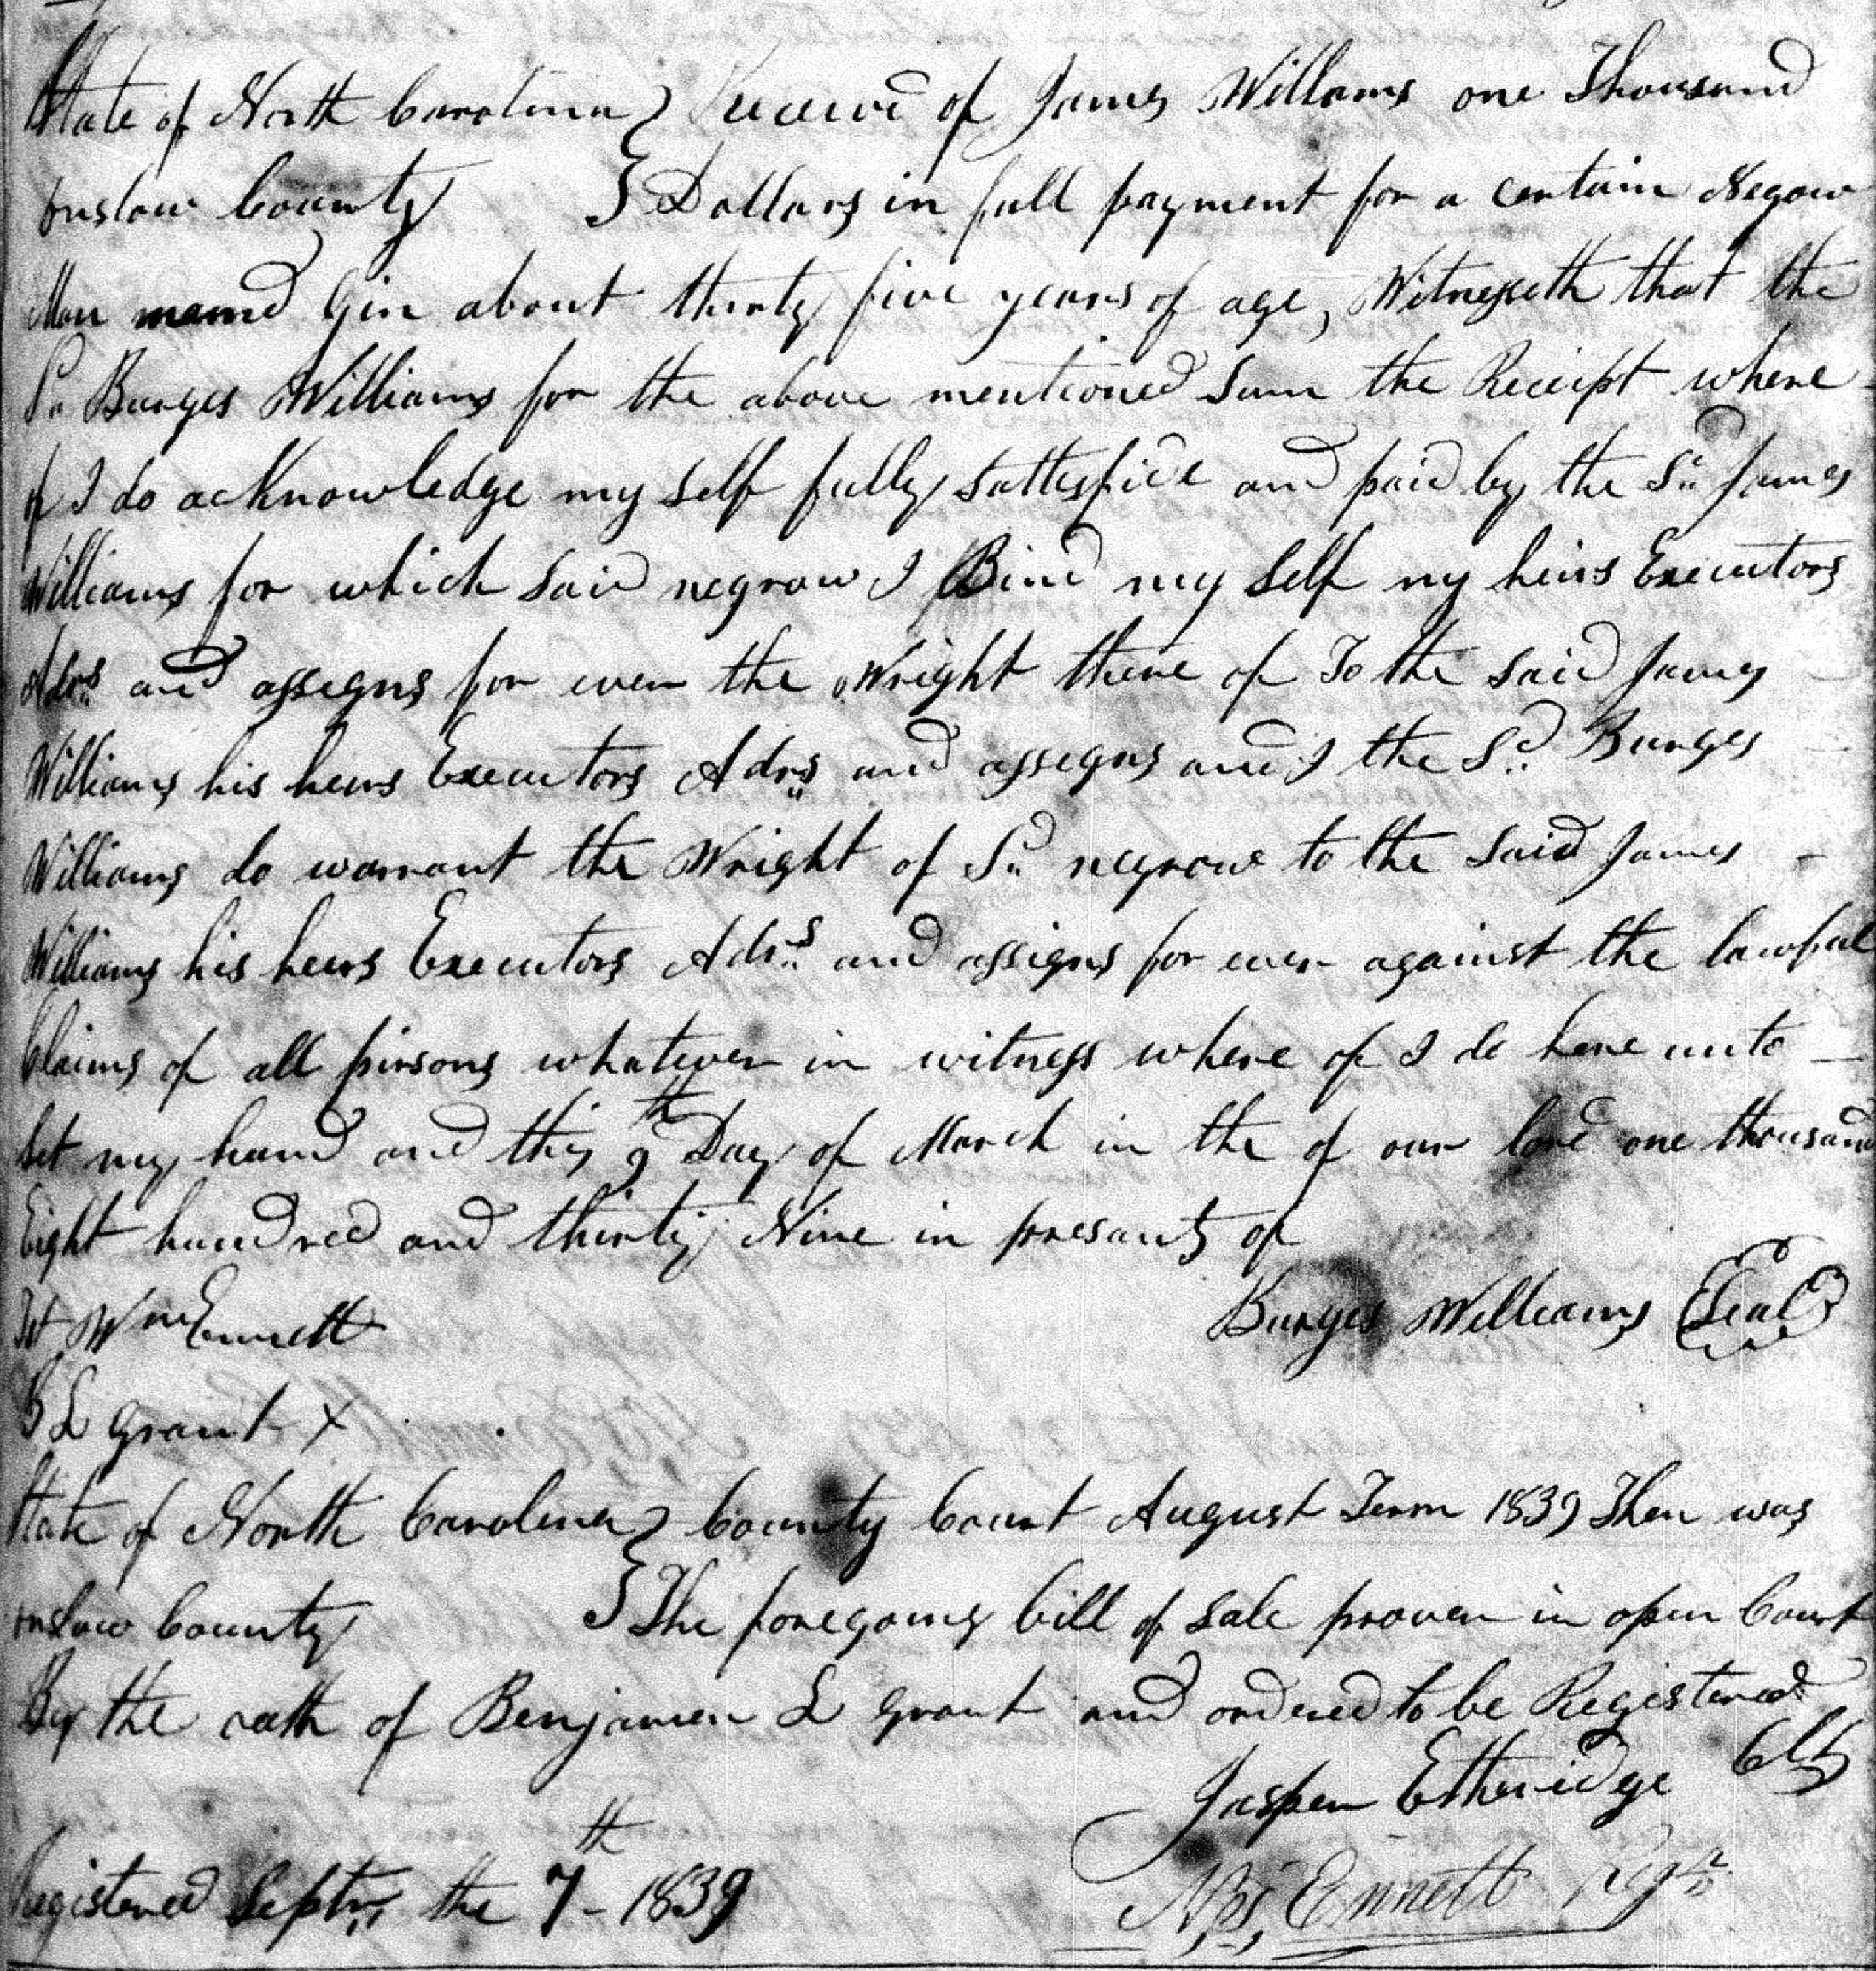 State of North Carolina } Received of James Williams one Thousand
onslow County } Dollars in full payment for a certain Negow
Man named Gin about thirty five years of age, Witnesseth that the
Sd Burges Williams for the above mentioned Sum the Receipt where
of I do acKnowledge my Self fully Sattesfide and paid by the Sd James
Williams for which Said negrow I Bind my Self my heirs Executors
Adrs and assegns for ever the Wright there of To the Said James
Williams his heirs Executors Adrs and assegns and I the Sd Burges
Williams do warrant the Wright of Sd negrow to the Said James
Williams his heirs Executors Adrs and assigns for ever against the lawful
Claims of all pirsons whatever in witness where of I do here unto
Set my hand and this 9th Day of March in the of our lord one thousand
Eight hundred and thirty Nine in presants of
Tst Wm Ennett Burges Williams (Seal)
B L grant X
State of North Carolina } County Court August Term 1839 Then was
onslow County } The foregoing bill of Sale proven in open Court
By the oath of Benjamen L grant and ordered to be Registered
Jasper Etheridge Clk
Registered Septr the 7th - 1839 Ennett Regr